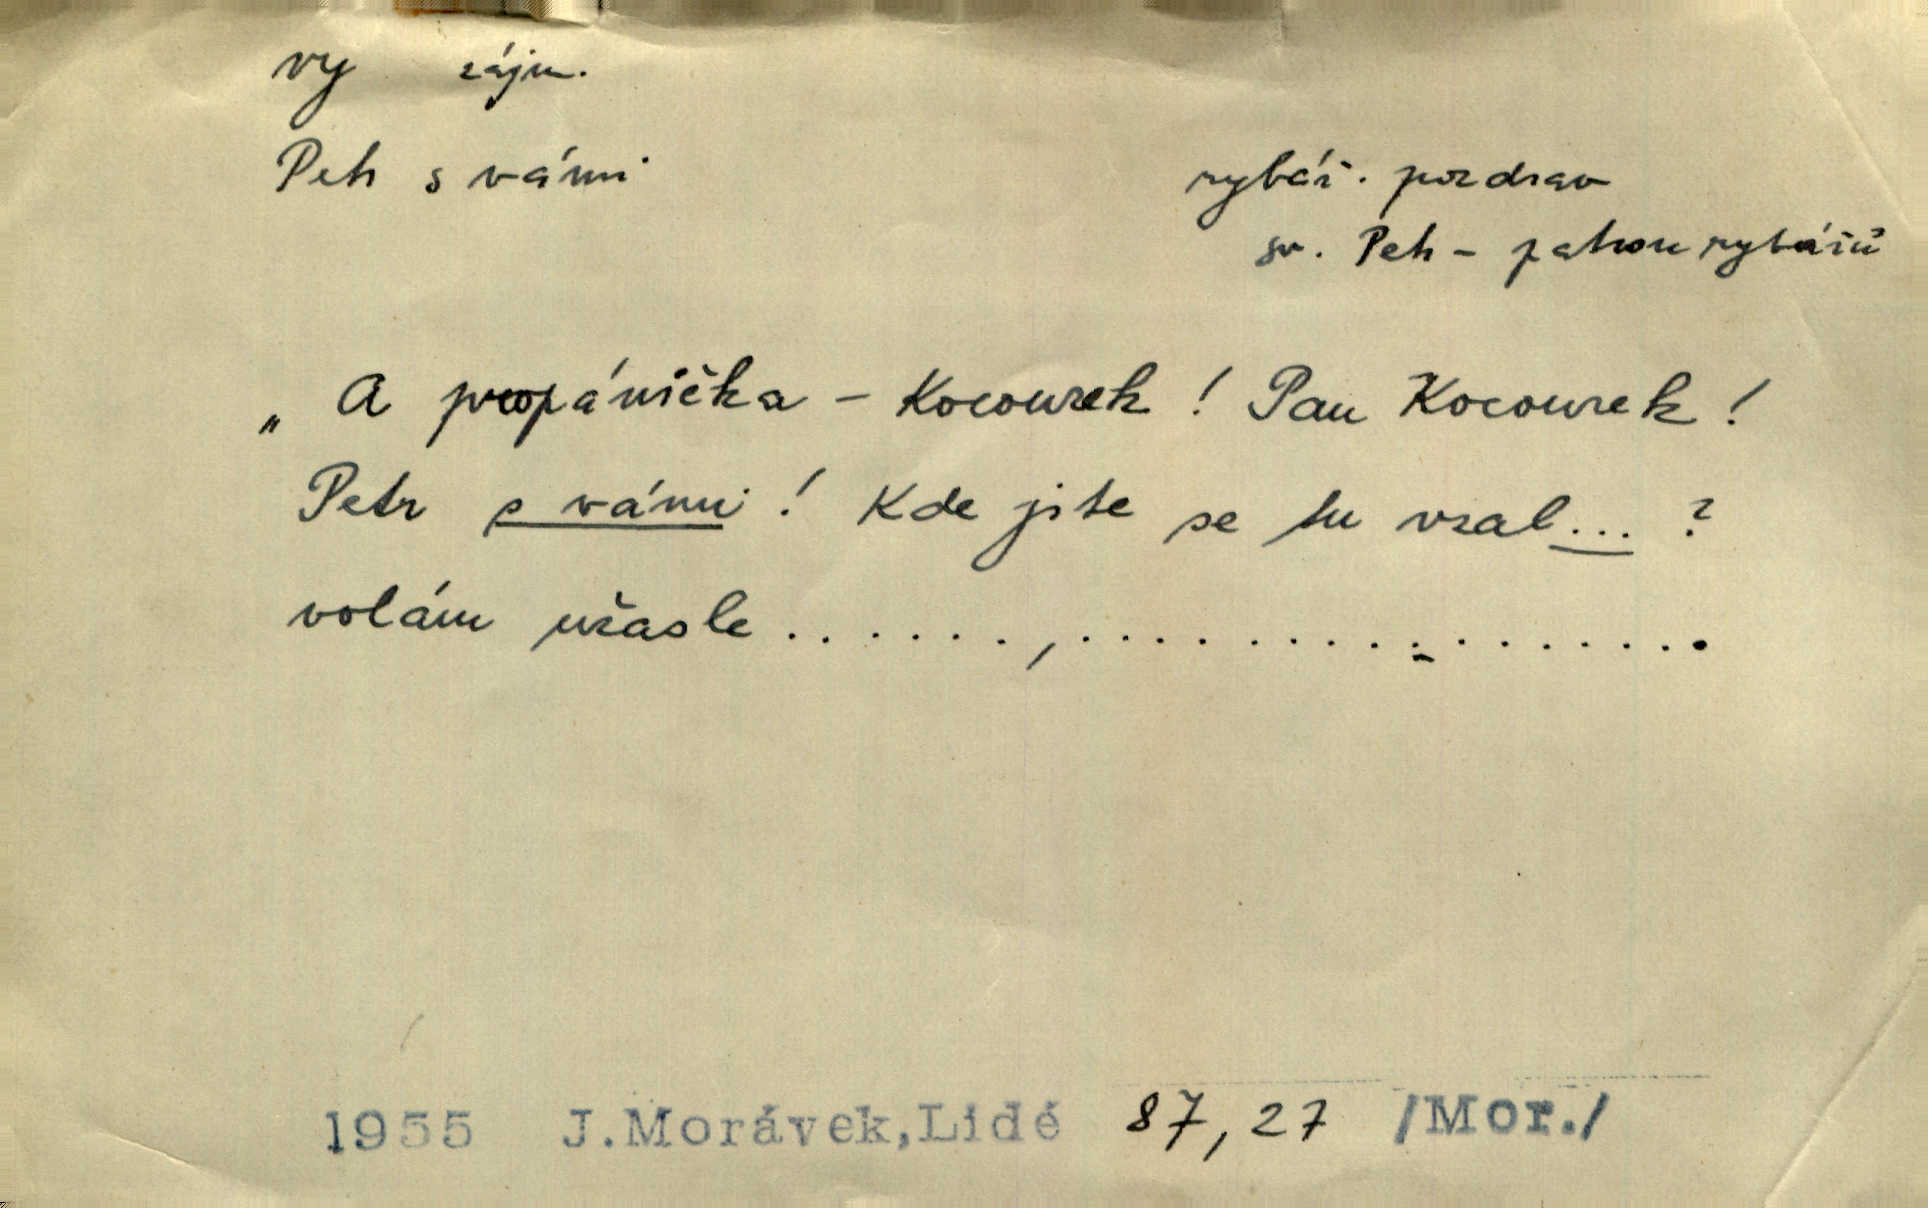 vy zájm.
Petr s vámi rybář. pozdrav
sv. Petr - patron rybářů
„ A propáníčka - Kocourek ! Pan Kocourek !
Petr s vámi ! Kde jste se tu vzal ... ?
volám užasle . . . . . . . , . . . . . . . . . . . . . . . . .
1955 J.Morávek,Lidé 87,27 /Mor./